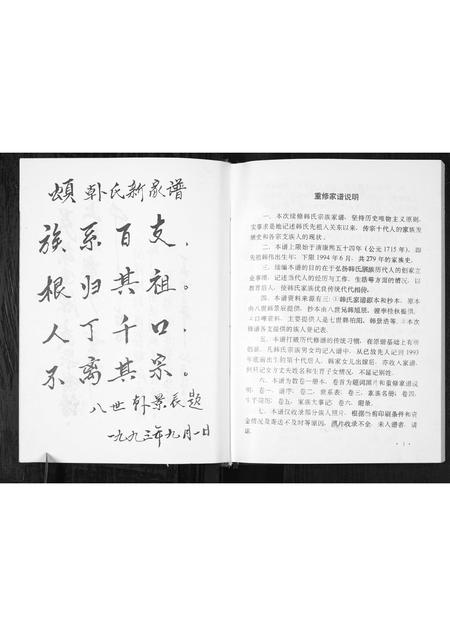 颂韩氏新家谱
族系百支，
根归其祖。
人丁千口，
不离其宗。
八世韩景辰题
一九九三年九月一日
重修家谱说明
一、本次续修韩氏宗族家谱，坚持历史唯物主义原则，
实事求是地记述韩氏先祖人关东以来，传宗十代人的家族发
展史和各宗支族人的现状。
二、本谱上限始于清康熙五十四年（公元1715年），即
先祖韩伟出生年；下限1994年6月，共279年的家族史。
三、续编本谱的目的在于弘扬韩氏族历代人的创家立
业事绩，记述当代人的经历与工作、生活等方面的情况，以
教育后人，使韩氏家族优良传统代代相传。
四、本谱资料来源有三：①韩氏家谱原本和抄本，原本
由八世韩景辰提供，抄本由八世韩旭辰、
②口碑资料，主要提供人是七世韩柏阳、韩景浩等，③本次
修谱各支提供的族人登记表。
五、本谱打破历代修谱的传统习惯，在原谱基础上有所
创新，凡韩氏宗族男女均记人谱中，从已故先人记到1993
年底前出生的第十代人，韩家女儿出嫁后，亦收人家谱，
但只记女方丈夫姓名和生育子女情况，不显记别姓。
六、本谱为数卷一册本，卷首为题词照片和重修家谱说
明，卷一、谱序；卷二、世系表；卷三、
生平简历；卷五、家族大事记；卷六、附录。
七、本谱仅收录部分族人照片，根据当前印刷条件和资
金情况及寄送不及时等原因，照片收录不全，未人谱者，请
谅。
· 1 ·